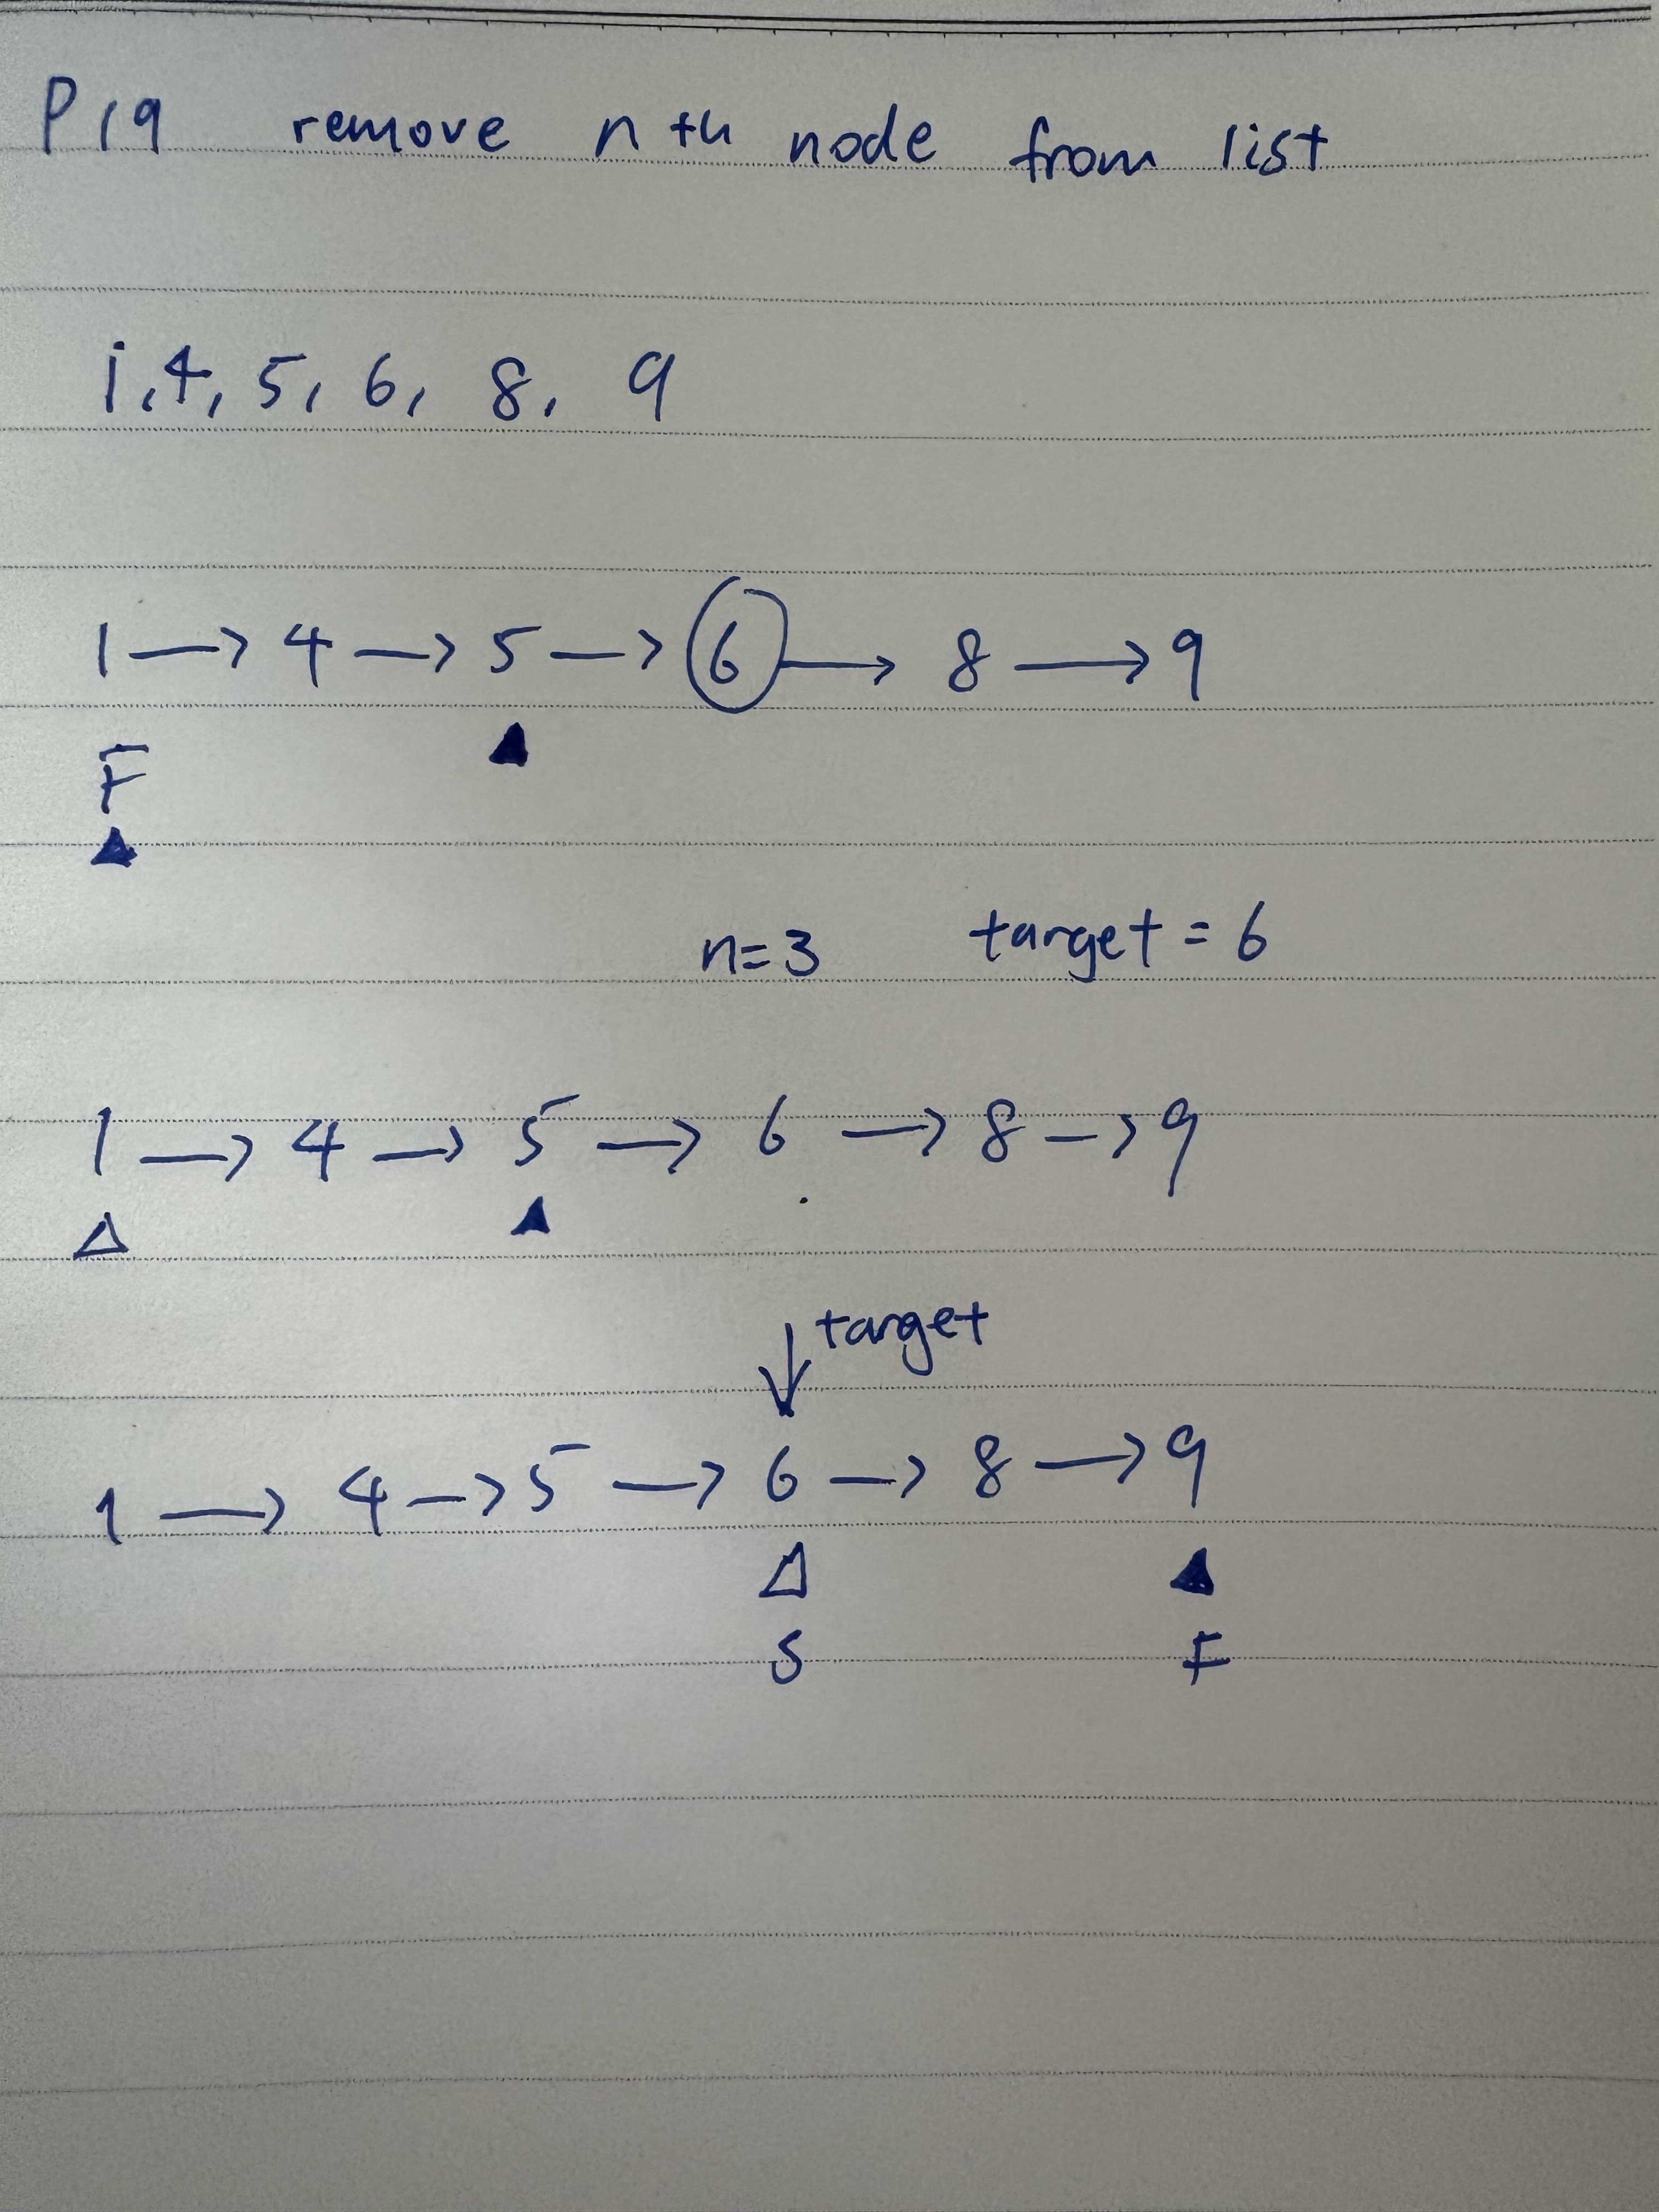 P19 remove nth node from list
1, 4, 5, 6, 8, 9
1 → 4 → 5 → 6 → 8 → 9
F
n=3 target = 6
1 → 4 → 5 → 6 → 8 → 9
target
1 → 4 → 5 → 6 → 8 → 9
S F